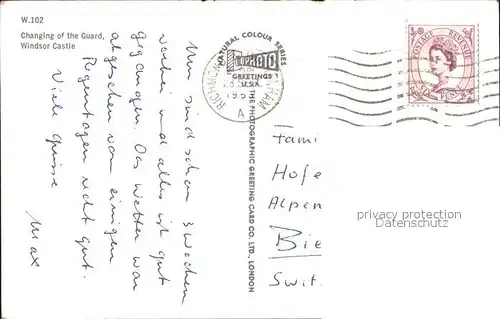 W.102
Changing of the Guard,
Windsor Castle
Nun sind schon 3 Wochen
vorbei und alles ist gut
gegangen. Das Wetter war
abgesehen von einigen
Regentagen recht gut.
Viele Grüsse
Max
NATURAL COLOUR SERIES
GREETINGS
THE PHOTOGRAPHIC GREETING CARD CO. LTD., LONDON
RICHMOND
A
POSTAGE REVENUE
SIX PENCE
Fami
Hofe
Alpen
Bie
Swit.
privacy protection
Datenschutz